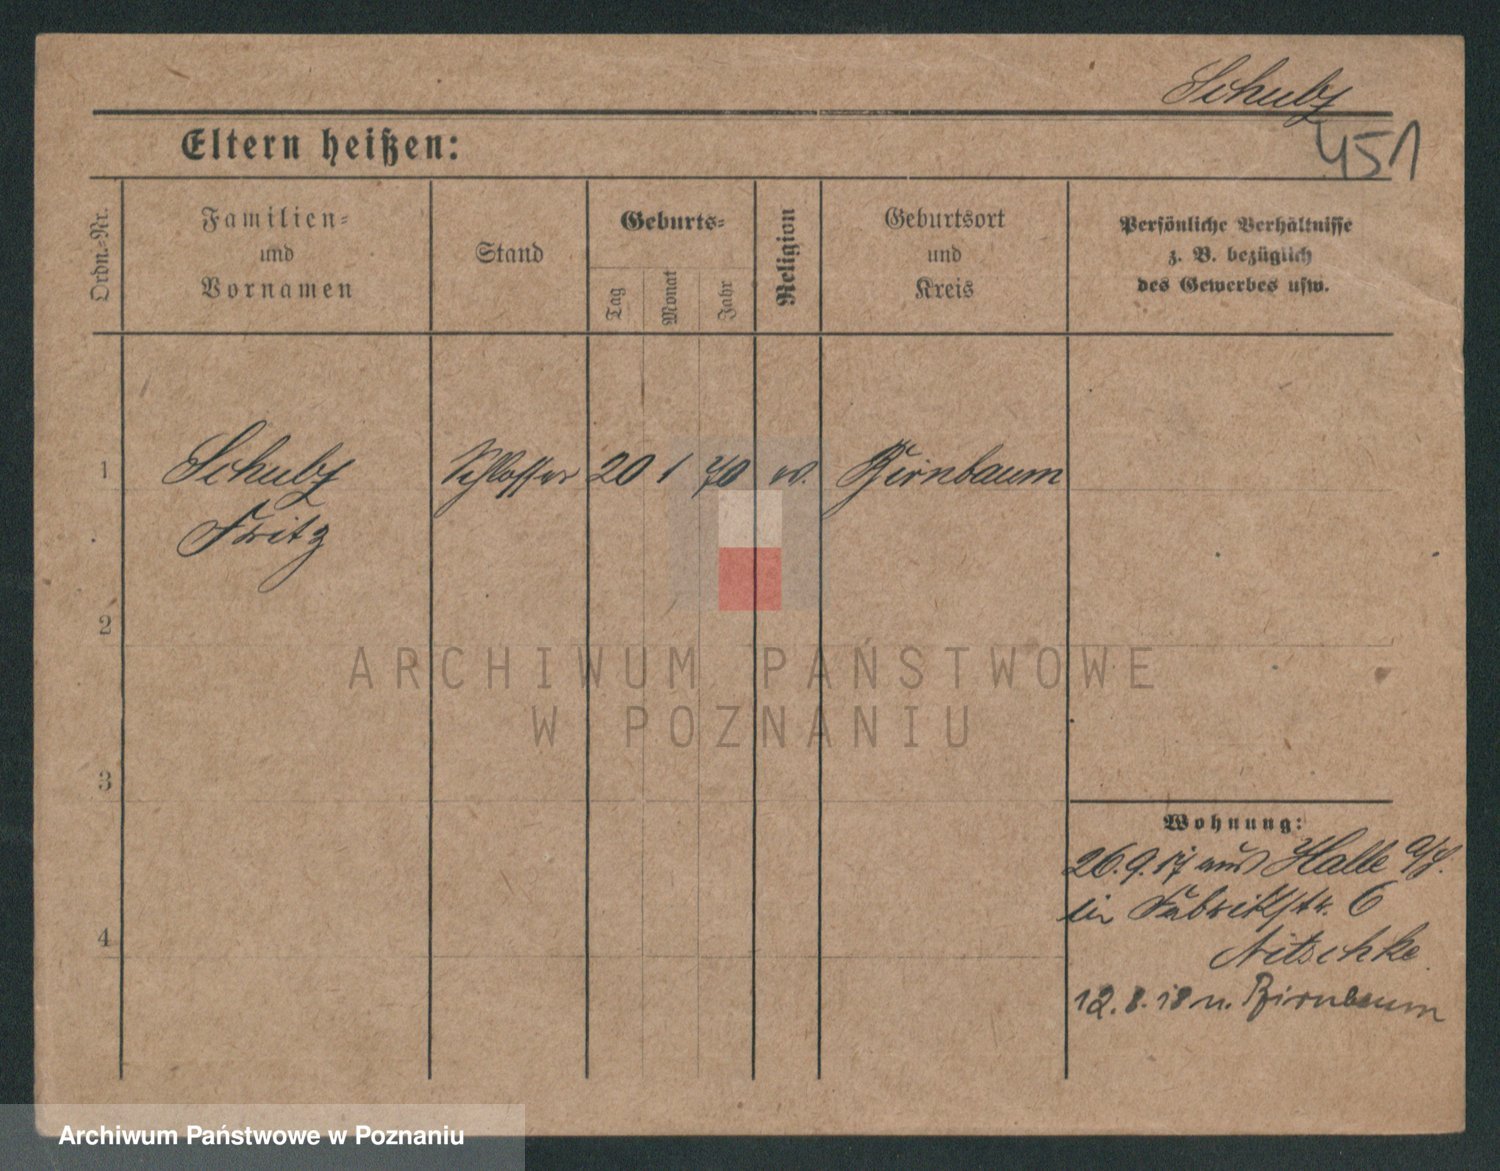 Schulz
451
Eltern heißen:
Ordn.-Nr.
Familien-
und
Vornamen
Stand
Geburts-
Tag
Monat
Jahr
Religion
Geburtsort
und
Kreis
Persönliche Verhältnisse
z. B. bezüglich
des Gewerbes usw.
1 Schulz Schlosser 20 1 70 ev. Birnbaum
Fritz
2
3
4
ARCHIWUM PAŃSTWOWE
W POZNANIU
Wohnung:
26.9.17 aus Halle a/S.
Fabrikstr. 6
Nitschke
12.8.18 n. Birnbaum
Archiwum Państwowe w Poznaniu